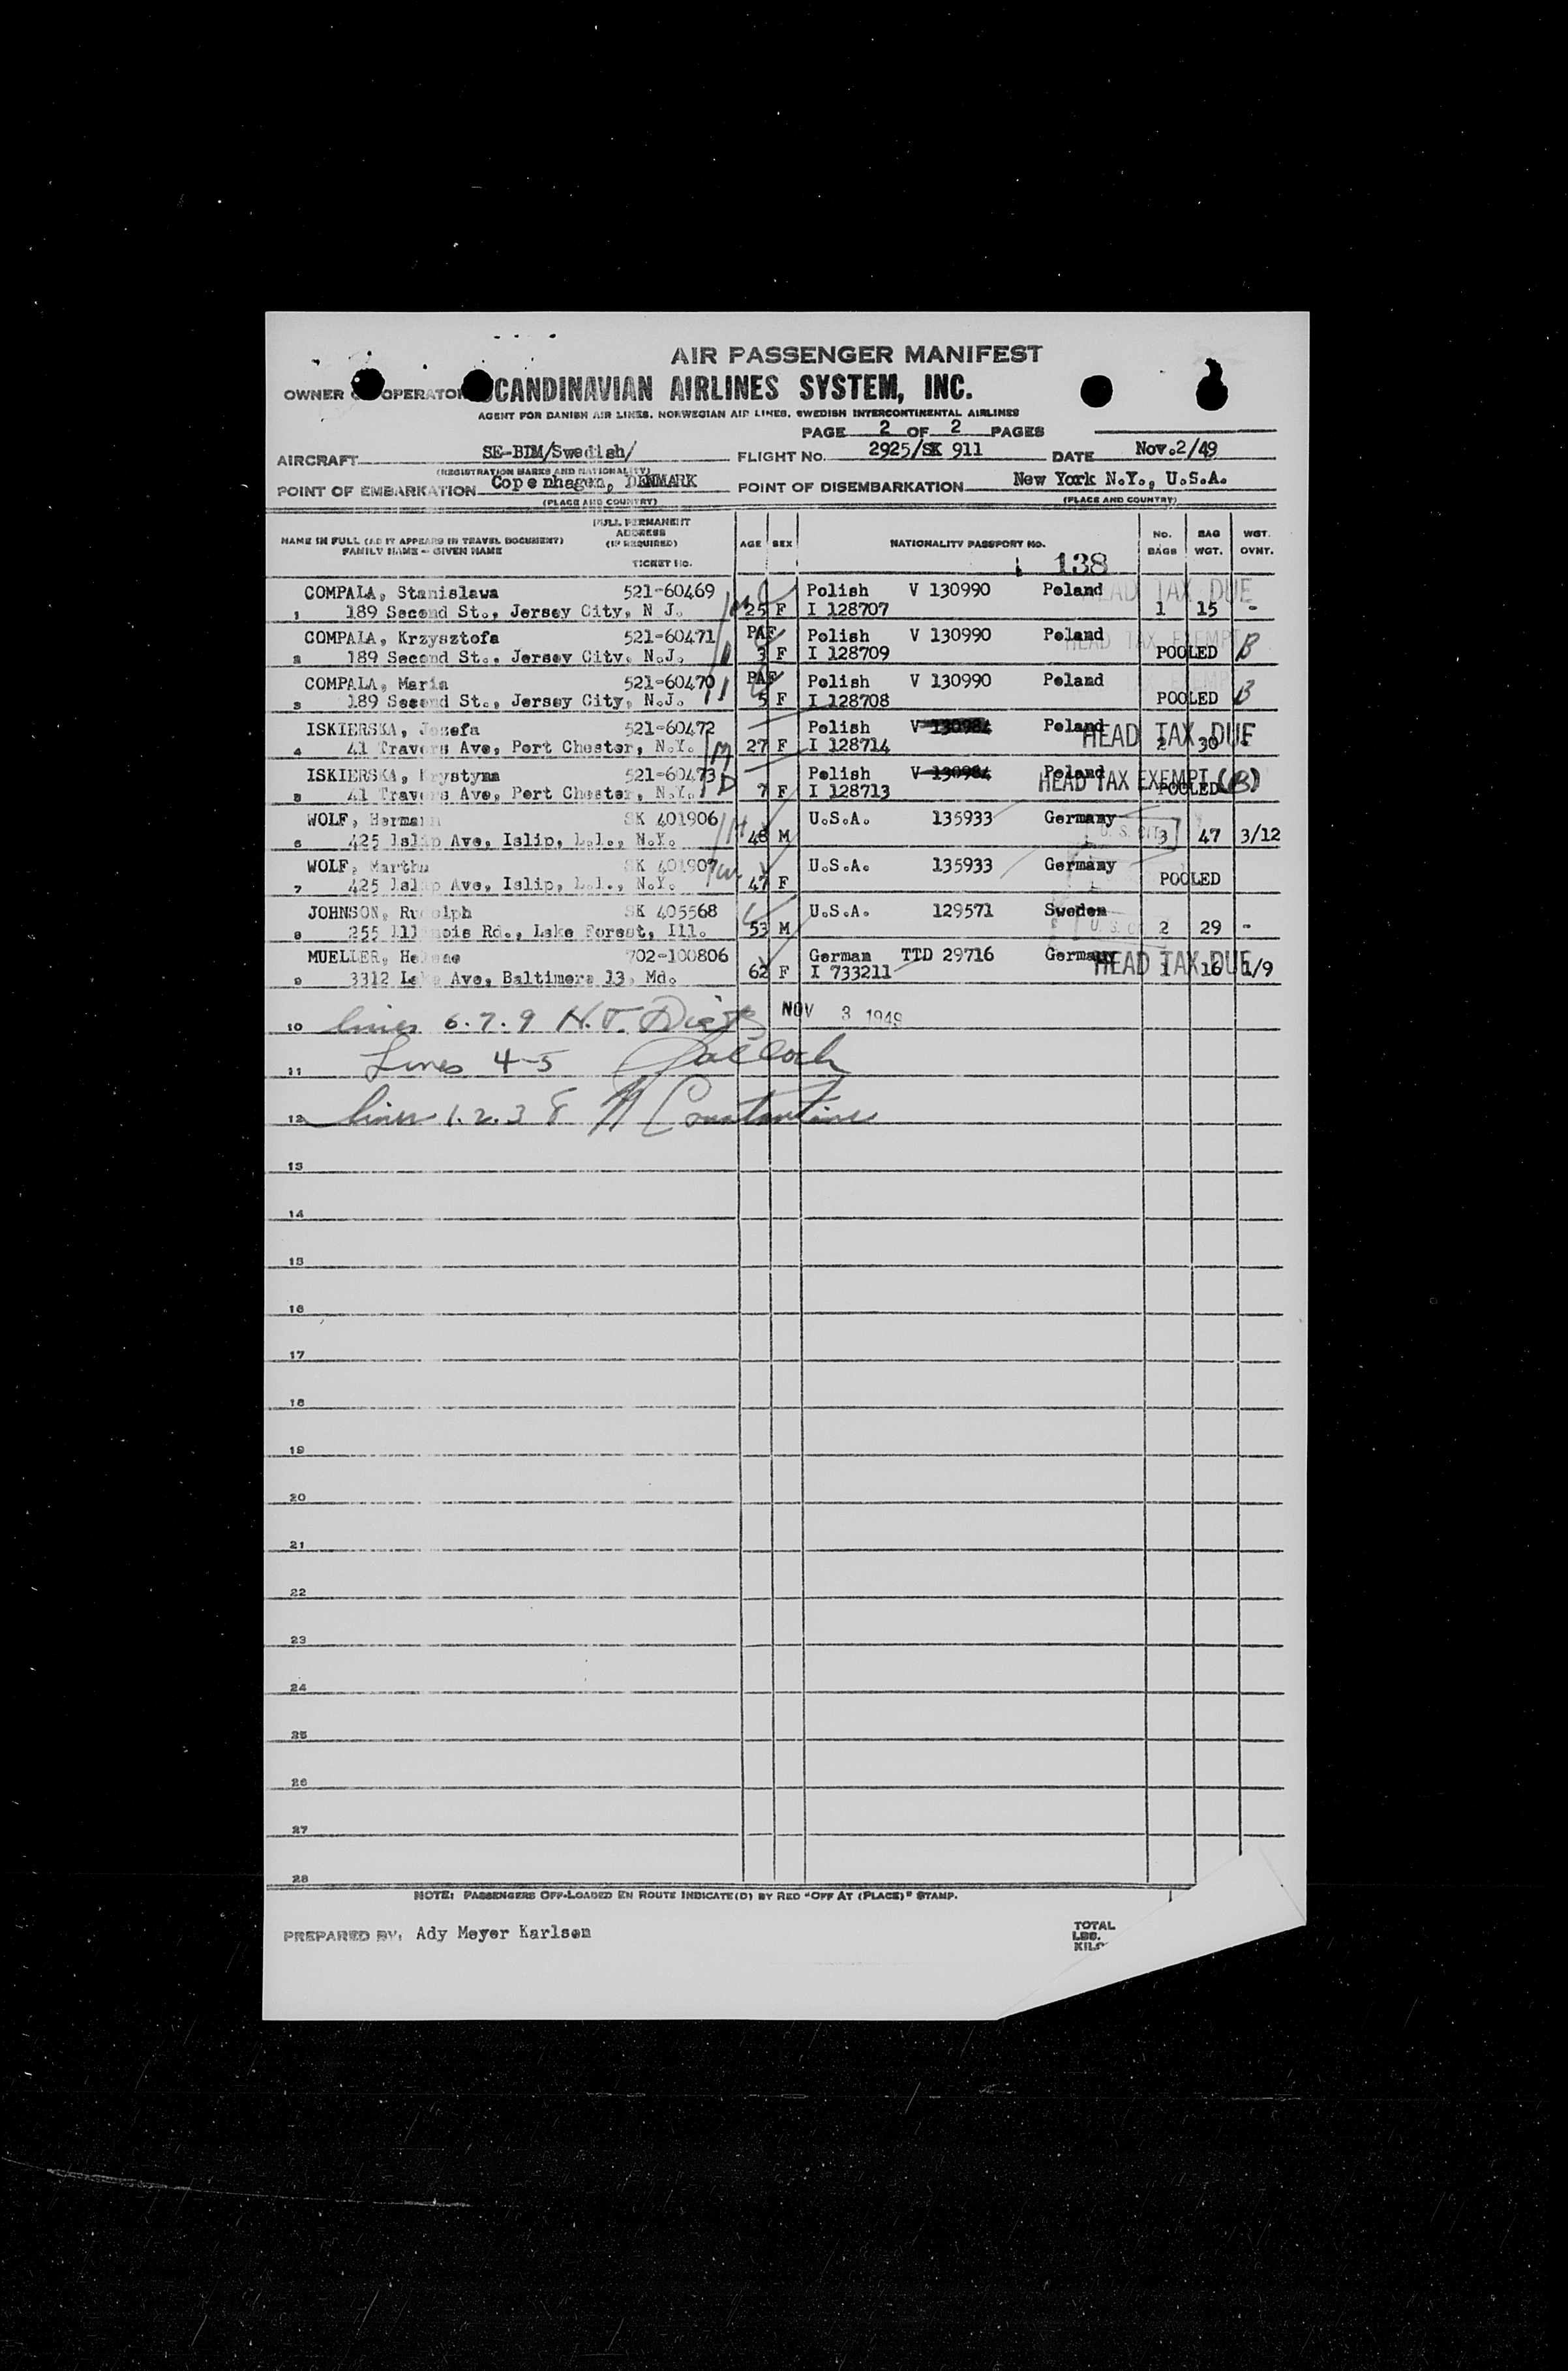 AIR PASSENGER MANIFEST
OWNER OPERATOR SCANDINAVIAN AIRLINES SYSTEM, INC.
AGENT FOR DANISH AIR LINES, NORWEGIAN AIR LINES, SWEDISH INTERCONTINENTAL AIRLINES
PAGE 2 OF 2 PAGES
AIRCRAFT SE-BIM/Swedish/ FLIGHT NO. 2925/SK 911 DATE Nov.2/49
(REGISTRATION MARKS AND NATIONALITY)
POINT OF EMBARKATION Copenhagen, DENMARK POINT OF DISEMBARKATION New York N.Y., U.S.A.
(PLACE AND COUNTRY) (PLACE AND COUNTRY)
NAME IN FULL (AS IT APPEARS IN TRAVEL DOCUMENT) FAMILY NAME - GIVEN NAME FULL PERMANENT ADDRESS (IF REQUIRED) TICKET NO. AGE SEX NATIONALITY PASSPORT NO. NO. BAGS BAG WGT. WGT. OVNT.
138
COMPALA, Stanislawa 521-60469 Polish V 130990 Poland HEAD TAX DUE
1 189 Second St., Jersey City, N J. 25 F I 128707 1 15 -
COMPALA, Krzysztofa 521-60471 PAF Polish V 130990 Poland HEAD TAX EXEMPT B
2 189 Second St., Jersey City, N.J. 3 F I 128709 POOLED
COMPALA, Maria 521-60470 PAF Polish V 130990 Poland B
3 189 Second St., Jersey City, N.J. 5 F I 128708 POOLED
ISKIERSKA, Jozefa 521-60472 Polish V 130984 Poland HEAD TAX DUE
4 41 Travers Ave, Port Chester, N.Y. M 27 F I 128714 2 30 -
ISKIERSKA, Krystyna 521-60473 Polish V 130984 Poland HEAD TAX EXEMPT (B)
5 41 Travers Ave, Port Chester, N.Y. D 7 F I 128713 POOLED
WOLF, Hermann SK 401906 U.S.A. 135933 Germany U.S. CIT
6 425 Islip Ave, Islip, L.I., N.Y. 48 M 3 47 3/12
WOLF, Martha SK 401907 U.S.A. 135933 Germany
7 425 Islip Ave, Islip, L.I., N.Y. 47 F POOLED
JOHNSON, Rudolph SK 405568 U.S.A. 129571 Sweden U.S. C
8 255 Illinois Rd., Lake Forest, Ill. 53 M 2 29 -
MUELLER, Helene 702-100806 German TTD 29716 Germany HEAD TAX DUE
9 3312 Lake Ave, Baltimore 13, Md. 62 F I 733211 1 16 1/9
NOV 3 1949
10 lines 6.7.9
11 Lines 4-5
12 lines 1.2.3 8 Constantine
13
14
15
16
17
18
19
20
21
22
23
24
25
26
27
28
NOTE: PASSENGERS OFF-LOADED EN ROUTE INDICATE(D) BY RED "OFF AT (PLACE)" STAMP.
PREPARED BY: Ady Meyer Karlsen
TOTAL
LBS.